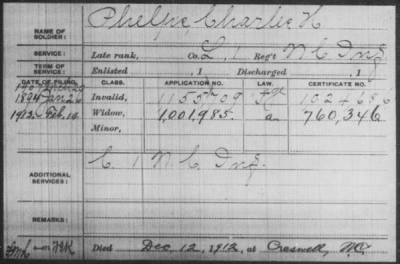 NAME OF SOLDIER: Phelps, Charlie H
SERVICE: Late rank, Co. L, 1 Reg't N.C. Inf.
TERM OF SERVICE: Enlisted , 1 Discharged , 1
DATE OF FILING. CLASS. APPLICATION NO. LAW. CERTIFICATE NO.
1894 Invalid, 1155709
1913. Feb. 10 Widow, 1,001,985 a 760,346
Minor,
C 1 N.C. Inf.
ADDITIONAL SERVICES:
REMARKS:
Died Dec. 12, 1912, at Creswell, N.C.